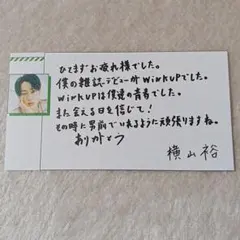 ひとまずお疲れ様でした。
僕の雑誌デビューがWinkUPでした。
WinkUPは僕達の青春でした。
また会える日を信じて！
その時に男前でいれるように頑張りますね。
ありがとう
横山裕